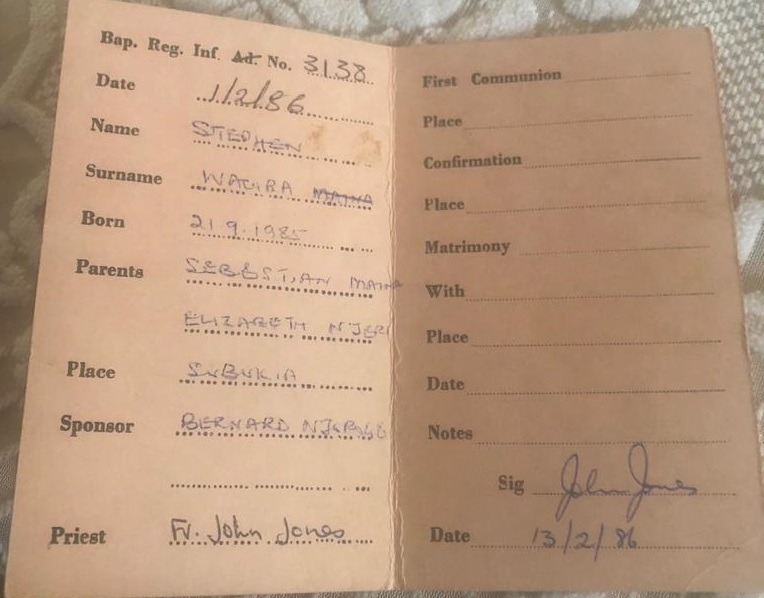 Bap. Reg. Inf. Ad. No. 3138
Date 1/2/86
Name STEPHEN
Surname WACIRA MAINA
Born 21.9.1985
Parents SEBOSTIAN MAINA
ELIZABETH N'JERI
Place SUBUKIA
Sponsor BERNARD
Priest Fr. John Jones
First Communion
Place
Confirmation
Place
Matrimony
With
Place
Date
Notes
Sig John Jones
Date 13/2/86